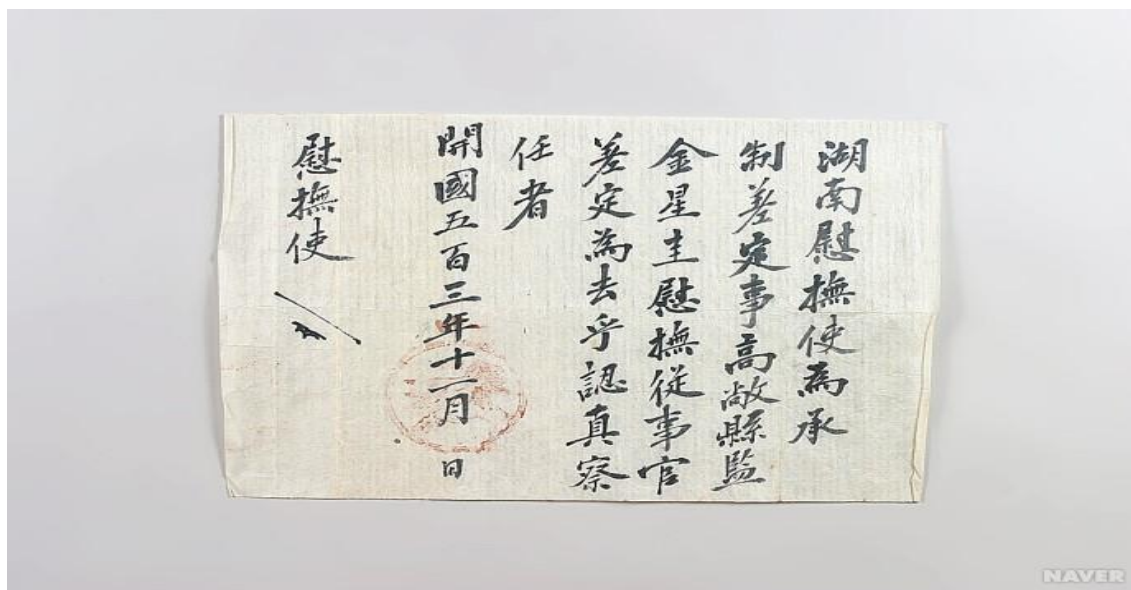 湖南慰撫使為承
制差定事高敞縣監
金星圭慰撫從事官
差定為去乎認真察
任者
開國五百三年十一月 日
慰撫使
NAVER